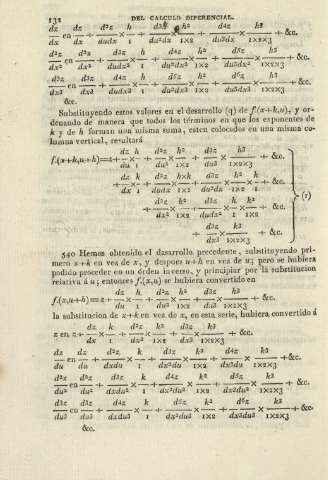 132 DEL CALCULO DIFERENCIAL.
dz/dx en dz/dx + d²z/dudx × h/1 + d³z/du²dx × h²/1×2 + d⁴z/du³dx × h³/1×2×3 + &c.
d²z/dx² en d²z/dx² + d³z/dudx² × h/1 + d⁴z/du²dx² × h²/1×2 + d⁵z/du³dx² × h³/1×2×3 + &c.
d³z/dx³ en d³z/dx³ + d⁴z/dudx³ × h/1 + d⁵z/du²dx³ × h²/1×2 + d⁶z/du³dx³ × h³/1×2×3 + &c.
&c.
Substituyendo estos valores en el desarrollo (q) de f.(x+k,u), y or-
denando de manera que todos los términos en que los exponentes de
k y de h forman una misma suma, esten colocados en una misma co-
lumna vertical, resultará
f.(x+k,u+h)=z+ dz/du × h/1 + d²z/du² × h²/1×2 + d³z/du³ × h³/1×2×3 + &c.
+ dz/dx × k/1 + d²z/dudx × h×k/1 + d³z/du²dx × h²/1×2 × k/1 + &c.
+ d²z/dx² × k²/1×2 + d³z/dudx² × h/1 × k²/1×2 + &c. (r)
+ d³z/dx³ × k³/1×2×3 + &c.
540 Hemos obtenido el desarrollo precedente, substituyendo pri-
mero x+k en vez de x, y despues u+h en vez de u; pero se hubiera
podido proceder en un órden inverso, y principiar por la substitucion
relativa á u; entonces f.(x,u) se hubiera convertido en
f.(x,u+h)=z+ dz/du × h/1 + d²z/du² × h²/1×2 + d³z/du³ × h³/1×2×3 + &c.
la substitucion de x+k en vez de x, en esta serie, hubiera convertido á
z en z+ dz/dx × k/1 + d²z/dx² × k²/1×2 + d³z/dx³ × k³/1×2×3 + &c.
dz/du en dz/du + d²z/dxdu × k/1 + d³z/dx²du × k²/1×2 + d⁴z/dx³du × k³/1×2×3 + &c.
d²z/du² en d²z/du² + d³z/dxdu² × k/1 + d⁴z/dx²du² × k²/1×2 + d⁵z/dx³du² × k³/1×2×3 + &c.
d³z/du³ en d³z/du³ + d⁴z/dxdu³ × k/1 + d⁵z/dx²du³ × k²/1×2 + d⁶z/dx³du³ × k³/1×2×3 + &c.
&c.